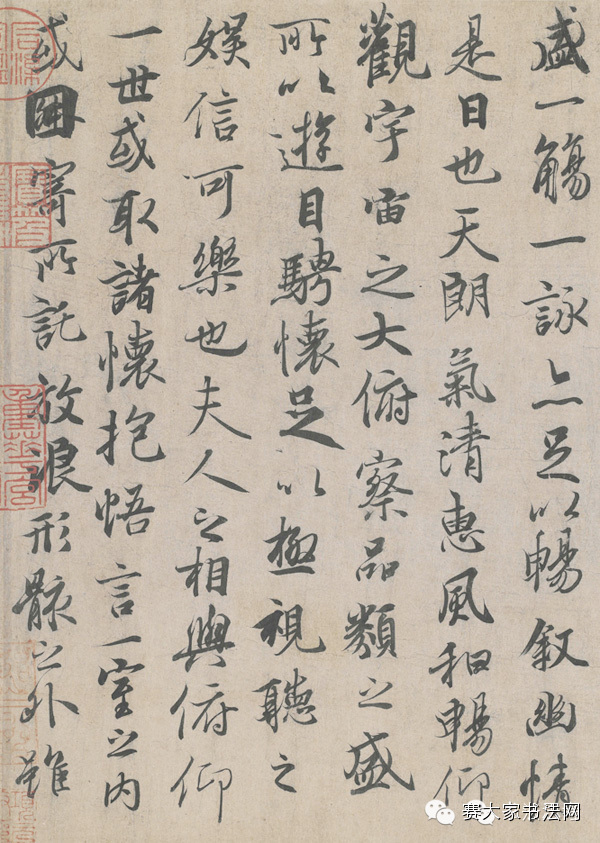 盛一觴一詠亦足以暢叙幽情
是日也天朗氣清惠風和暢仰
觀宇宙之大俯察品類之盛
所以遊目騁懷足以極視聽之
娛信可樂也夫人之相與俯仰
一世或取諸懷抱悟言一室之内
或因寄所託放浪形骸之外雖
赛大家书法网